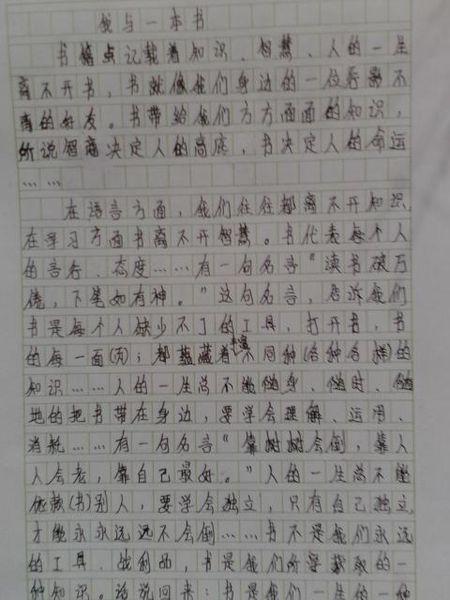 我与一本书
书籍点记载着知识、智慧、人的一生
离不开书，书就像我们身边的一位形影不
离的好友。书带给我们方方面面的知识，
所说智商决定人的高底，书决定人的命运
……
在语言方面，我们往往都离不开知识，
在学习方面书离不开智慧。书代表每个人
的言行、态度……有一句名言“读书破万
卷，下笔如有神。”这句名言，告诉我们
书是每个人缺少不了的工具，打开书，书
的每一面(页)；都蕴藏着不同种(各种各样)的
知识……人的一生总不能随身、随时、随
地的把书带在身边，要学会理解、运用、
消耗……有一句名言“靠树树会倒，靠人
人会老，靠自己最好。”人的一生总不能
依赖(书)别人，要学会独立，只有自己独立，
才能永永远远不会倒……书不是我们永远
的工具、战利品，书是我们所要获取的一
种知识。话说回来：书是我们一生的一种